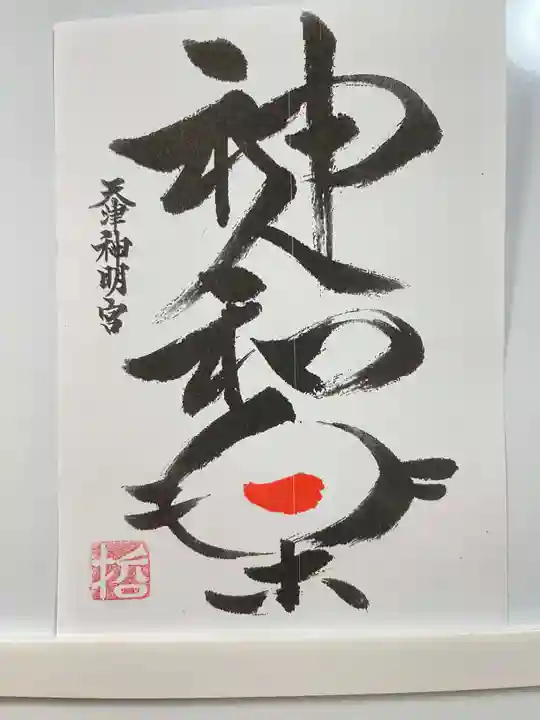 神和楽
天津神明宮
哲